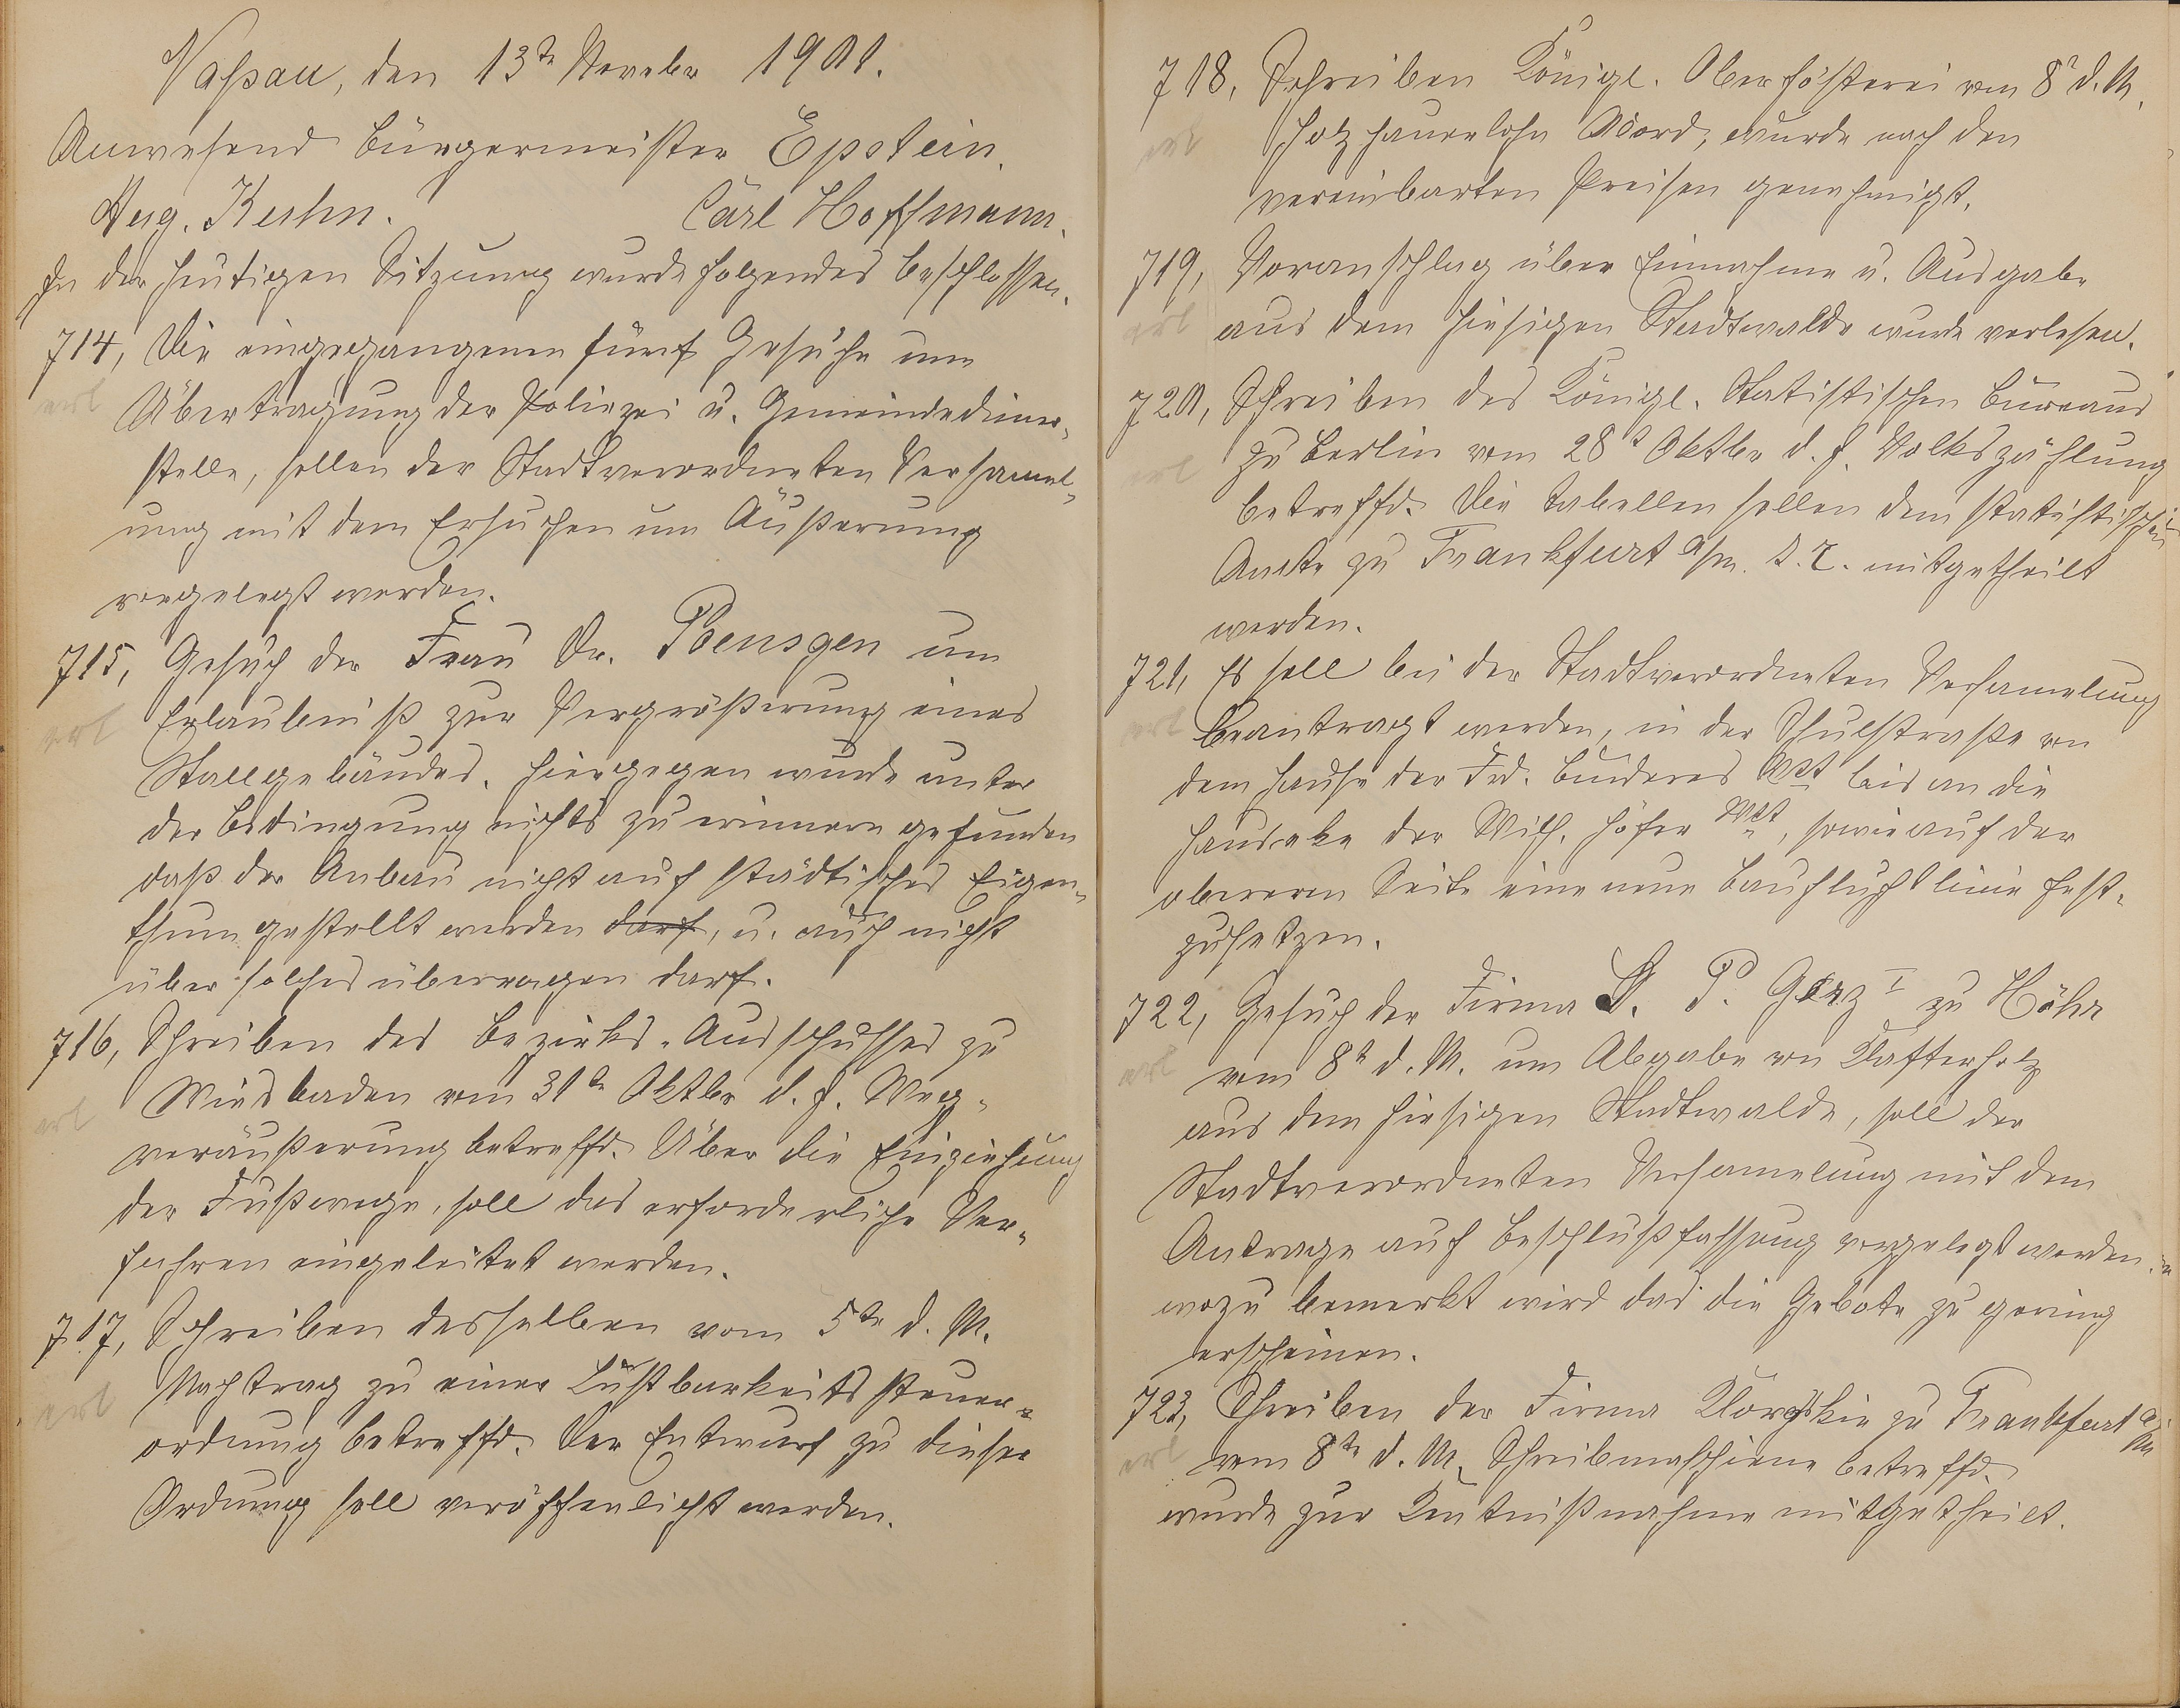 Naßau, den 13te November 1900.
Anwesend Bürgermeister Epstein.
Aug. Kuhn. Carl Hoffmann.
In der heutigen Sitzung wurde folgendes beschlossen.
714, Die eingegangenen fünf Gesuche um
erl Übertragung der Polizei u. Gemeindediener-
stelle, sollen der Stadtverordneten Versamel-
ung mit dem Ersuchen um Äußerung
vorgelegt werden.
715, Gesuch der Frau Dr. Poensgen um
erl Erlaubniß zur Vergrößerung eines
Stallgebäudes. Hiergegen wurde unter
der Bedingung nichts zu erinnern gefunden
daß der Anbau nicht auf städtisches Eigen-
thum gestellt werden darf, u. auch nicht
über solches überragen darf.
716, Schreiben des Bezirks-Ausschusses zu
erl Wiesbaden vom 31te Oktbr d. J. Weg-
veräußerung betreffd. Über die Einziehung
der Fußwege, soll das erforderliche Ver-
fahren eingeleitet werden.
717, Schreiben desselben vom 5te d. M.
erl Nachtrag zu einer Lustbarkeits steuer-
ordnung betreffd. Der Entwurf zu dieser
Ordnung soll veröffenlicht werden.
718, Schreiben Königl. Oberfösterei vom 8t d. M.
erl Holzhauerlohn Accord, wurde nach den
vereinbarten Preisen genehmigt.
719, Voranschlag über Einnahme u. Ausgabe
erl aus dem hiesigen Stadtwalde wurde verlesen.
720, Schreiben des Königl. Statistischen Büreaus
zu Berlin vom 28t Oktbr d. J. Volkszählung
erl betreffd. Die Tabellen sollen dem statistischen
Amte zu Frankfurt a/m. s. Z. mitgetheilt
werden.
721, Es soll bei der Stadtverordneten Versamelung
erl beantragt werden, in der Schulstraße von
dem Hause der Frd. Buderus Wtt bis an die
Hausecke der Wilh. Höfer Wtt, sowie auf der
obereren Seite eine neue Baufluchtlinie fest-
zusetzen.
722, Gesuch der Firma S. P. Gerz I zu Höhr
erl vom 8t d. M. um Abgabe von Klafterholz
aus dem hiesigen Stadtwalde, soll der
Stadtverordneten Versamelung mit dem
Antrage auf Beschlußfassung vorgelegt werden,
wozu bemerkt wird das die Gebote zu gering
erscheinen.
723, Schreiben der Firma zu Frankfurt a/m
erl vom 8te d. M. Schreibmaschiene betreffd.
wurde zur Kentnißnahme mitgetheilt.